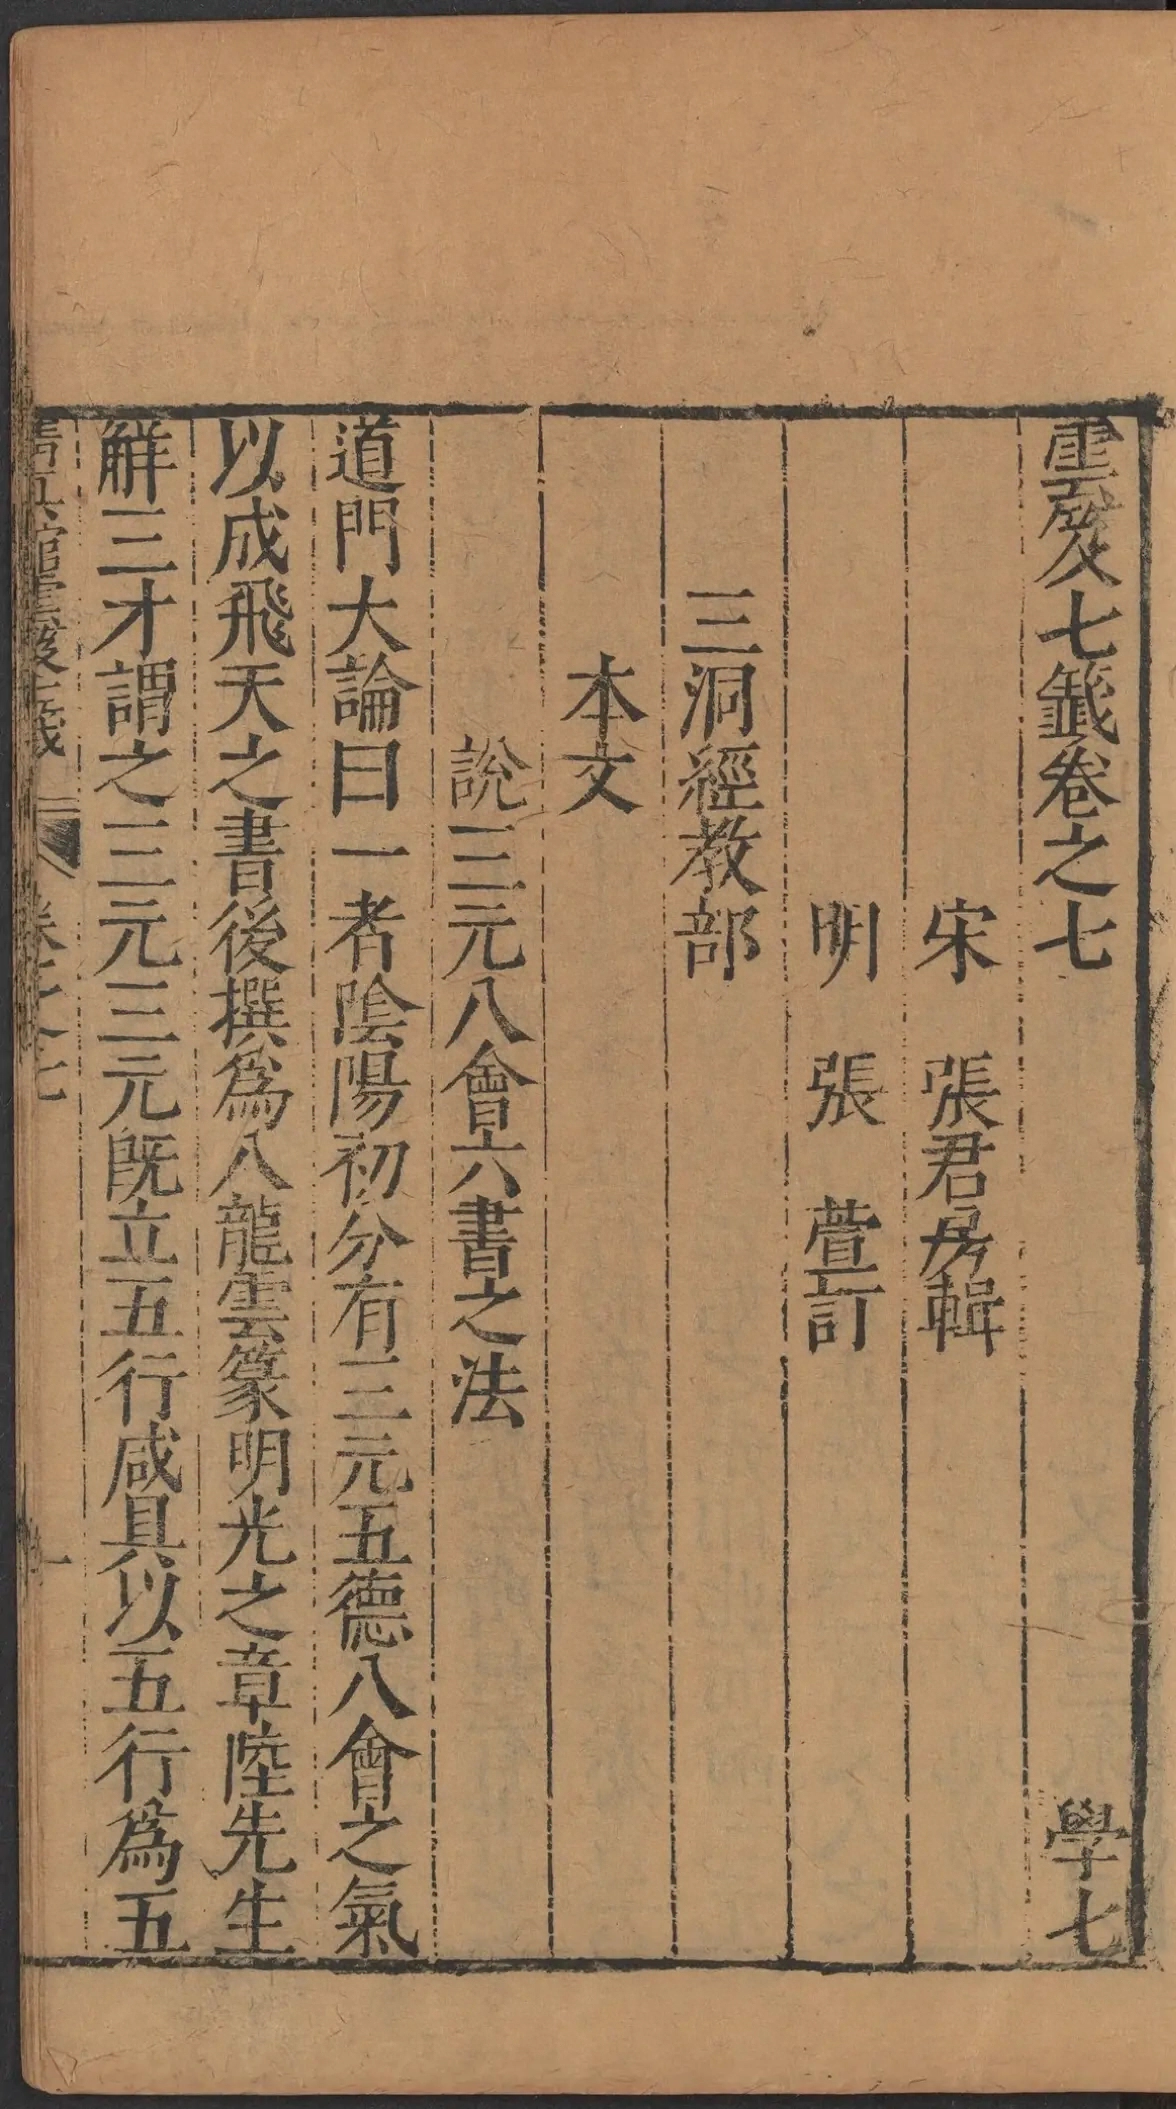 雲笈七籤卷之七　學七
宋　張君房輯
明　張　萱訂
三洞經教部
本文
說三元八會六書之法
道門大論曰一者陰陽初分有三元五德八會之氣
以成飛天之書後撰爲八龍雲篆明光之章陸先生
解三才謂之三元三元旣立五行咸具以五行爲五
卷之七　一